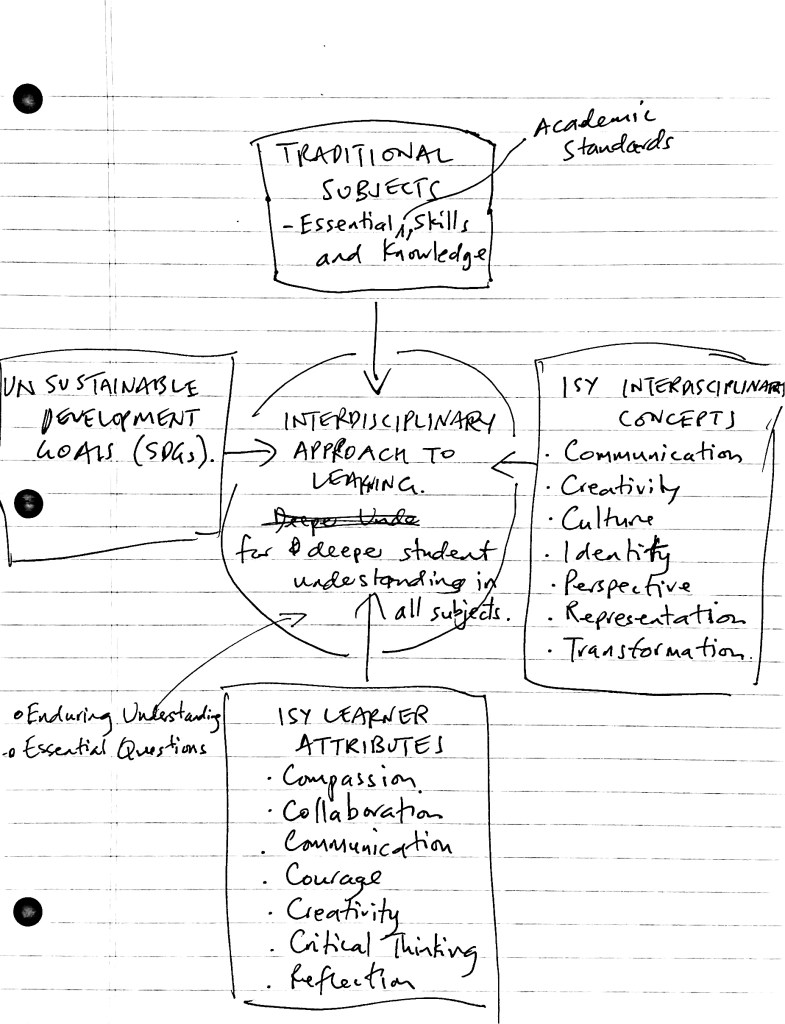 Academic
Standards
TRADITIONAL
SUBJECTS
- Essential, Skills
and Knowledge
UN SUSTAINABLE
DEVELOPMENT
GOALS (SDGs).
INTERDISCIPLINARY
APPROACH TO
LEARNING.
Deeper Unde
for deeper student
understanding in
all subjects.
ISY INTERDISCIPLINARY
CONCEPTS
· Communication
· Creativity
· Culture
· Identity
· Perspective
· Representation
· Transformation.
o Enduring Understanding
o Essential Questions
ISY LEARNER
ATTRIBUTES
· Compassion
· Collaboration
· Communication
· Courage
· Creativity
· Critical Thinking
· Reflection